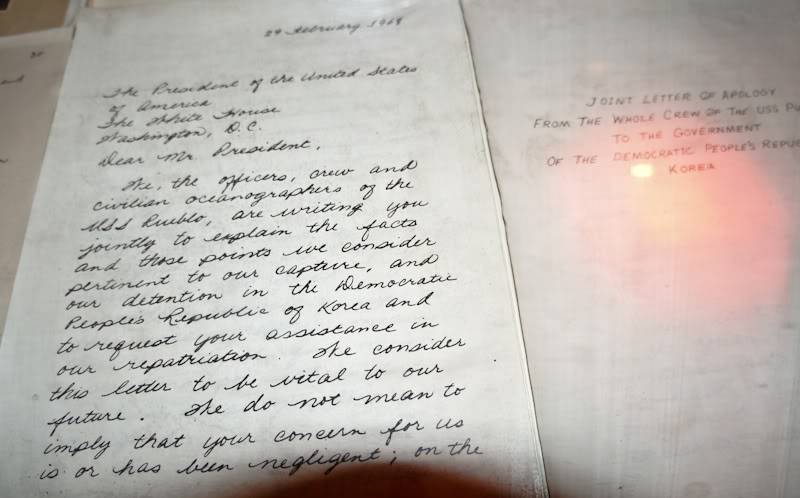 29 February 1968
The President of the United States
of America
The White House
Washington, D.C.
Dear Mr. President,
We, the officers, crew and
civilian oceanographers of the
USS Pueblo, are writing you
jointly to explain the facts
and those points we consider
pertinent to our capture, and
our detention in the Democratic
People's Republic of Korea and
to request your assistance in
our repatriation. We consider
this letter to be vital to our
future. We do not mean to
imply that your concern for us
is or has been negligent; on the
JOINT LETTER OF APOLOGY
FROM THE WHOLE CREW OF THE USS PU
TO THE GOVERNMENT
OF THE DEMOCRATIC PEOPLE'S REPUB
KOREA